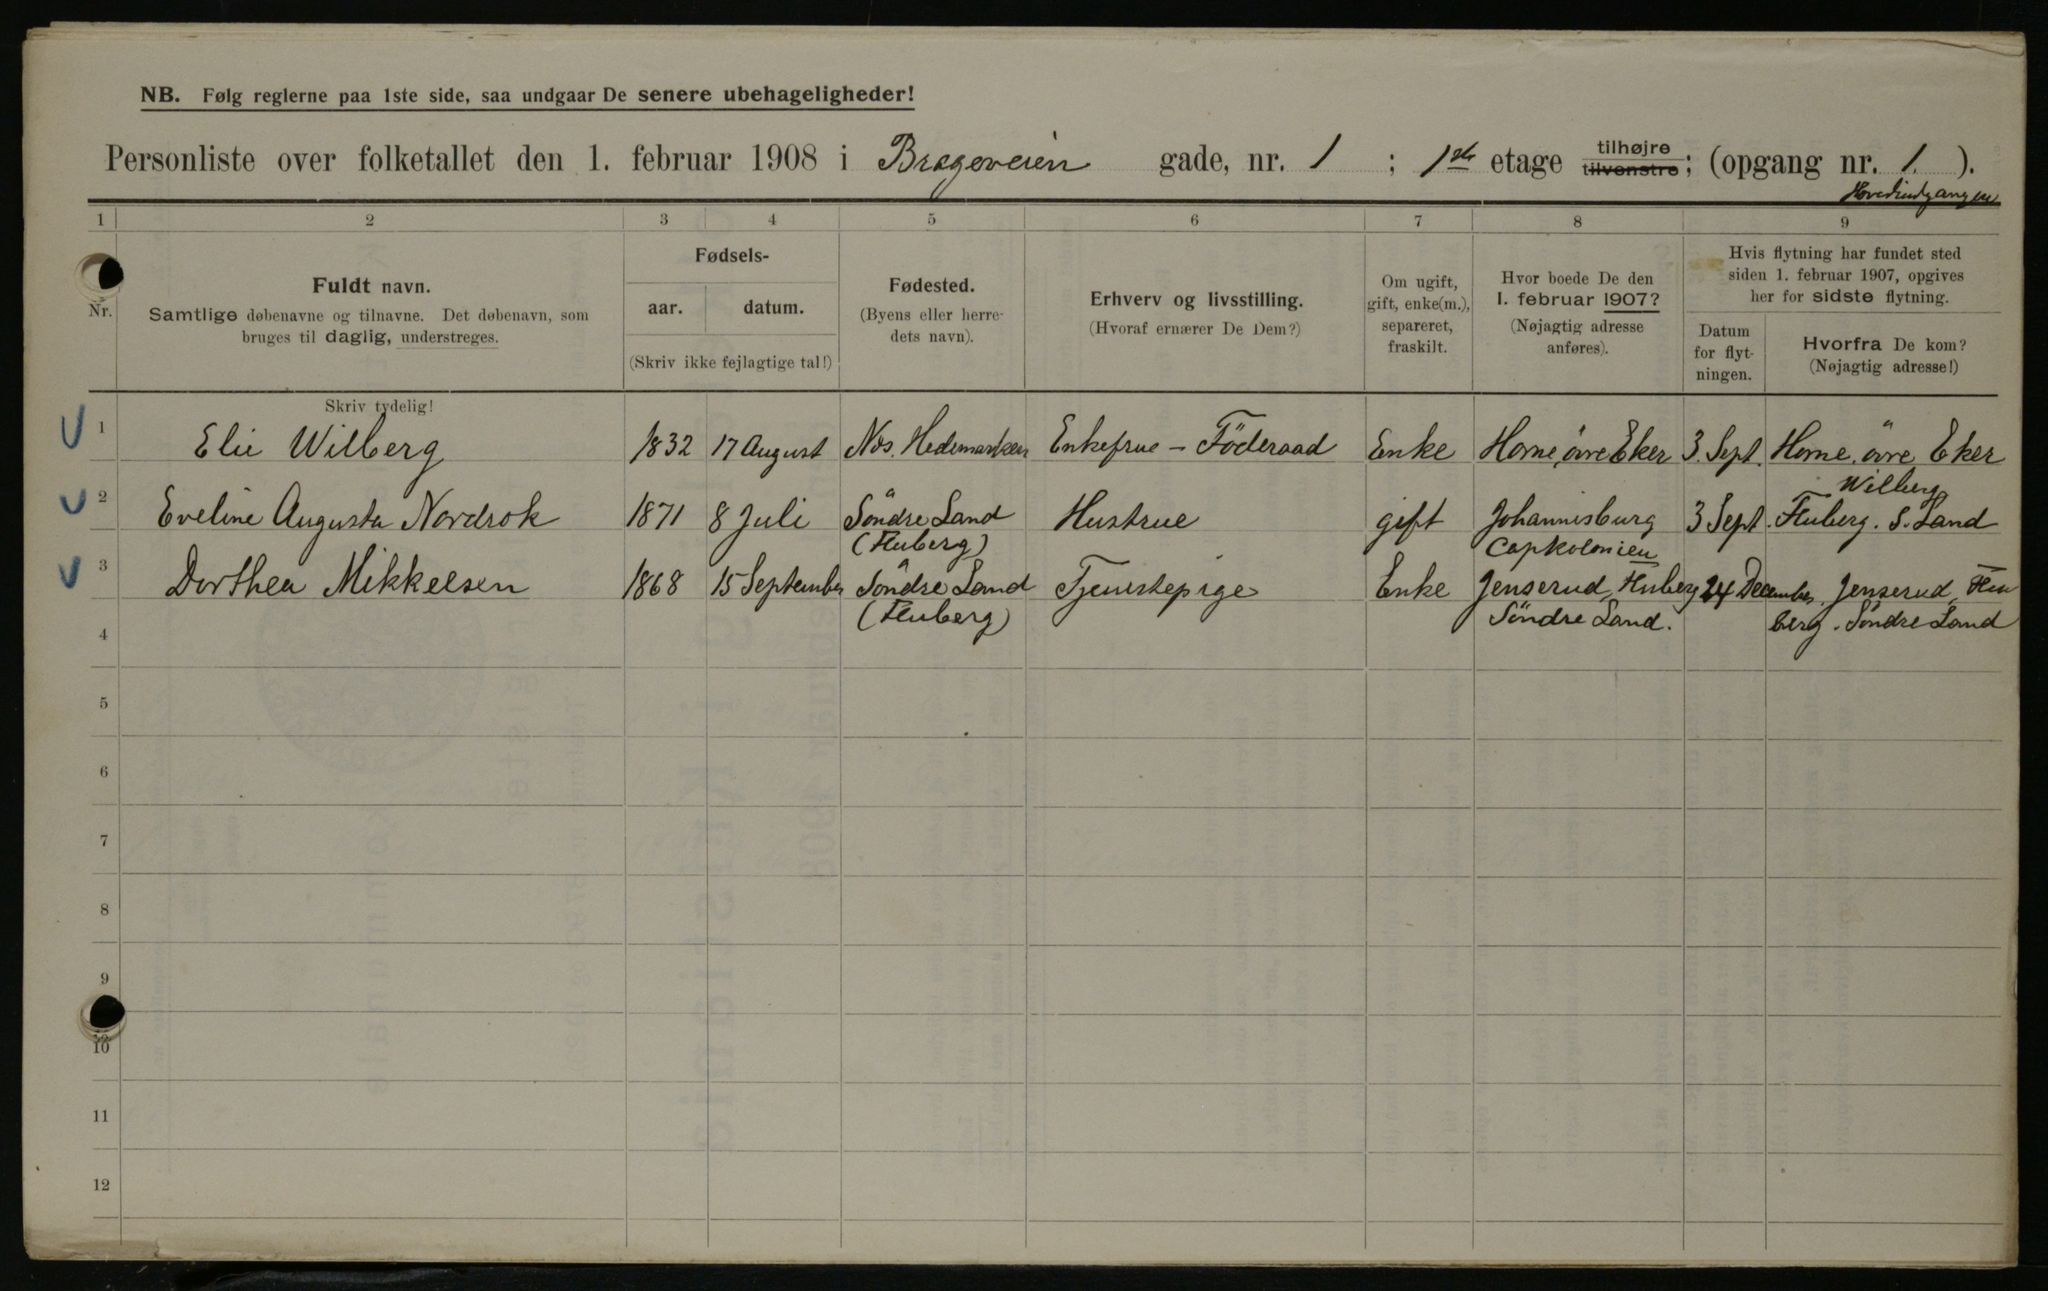 NB. Følg reglerne paa 1ste side, saa undgaar De senere ubehageligheder!
Personliste over folketallet den 1. februar 1908 i Brageveien gade, nr. 1 ; 1ste etage tilhøjre tilvenstre; (opgang nr. 1. ).
Hovedindgangen
1 2 3 4 5 6 7 8 9
Nr.
Fuldt navn.
Samtlige døbenavne og tilnavne. Det døbenavn, som
bruges til daglig, understreges.
Fødsels-
aar. datum.
(Skriv ikke fejlagtige tal!)
Fødested.
(Byens eller herre-
dets navn).
Erhverv og livsstilling.
(Hvoraf ernærer De Dem?)
Om ugift,
gift, enke(m.),
separeret,
fraskilt.
Hvor boede De den
1. februar 1907?
(Nøjagtig adresse
anføres).
Hvis flytning har fundet sted
siden 1. februar 1907, opgives
her for sidste flytning.
Datum
for flyt-
ningen.
Hvorfra De kom?
(Nøjagtig adresse!)
Skriv tydelig!
1 Elie Wilberg 1832 17 August Nds. Hedemarken Enkefrue - Föderaad Enke Horne, övre Eker 3. Sept. Horne, övre Eker
Wilberg
2 Eveline Augusta Nordrok 1871 8 Juli Söndre Land Hustrue gift Johannisburg 3 Sept. Fluberg. S. Land
(Fluberg) Capkolonien
3 Dorthea Mikkelsen 1868 15 September Söndre Land Tjenestepige Enke Jenserud, Fluberg 24 December Jenserud, Flu
(Fluberg) Söndre Land. berg. Söndre Land
4
5
6
7
8
9
10
11
12